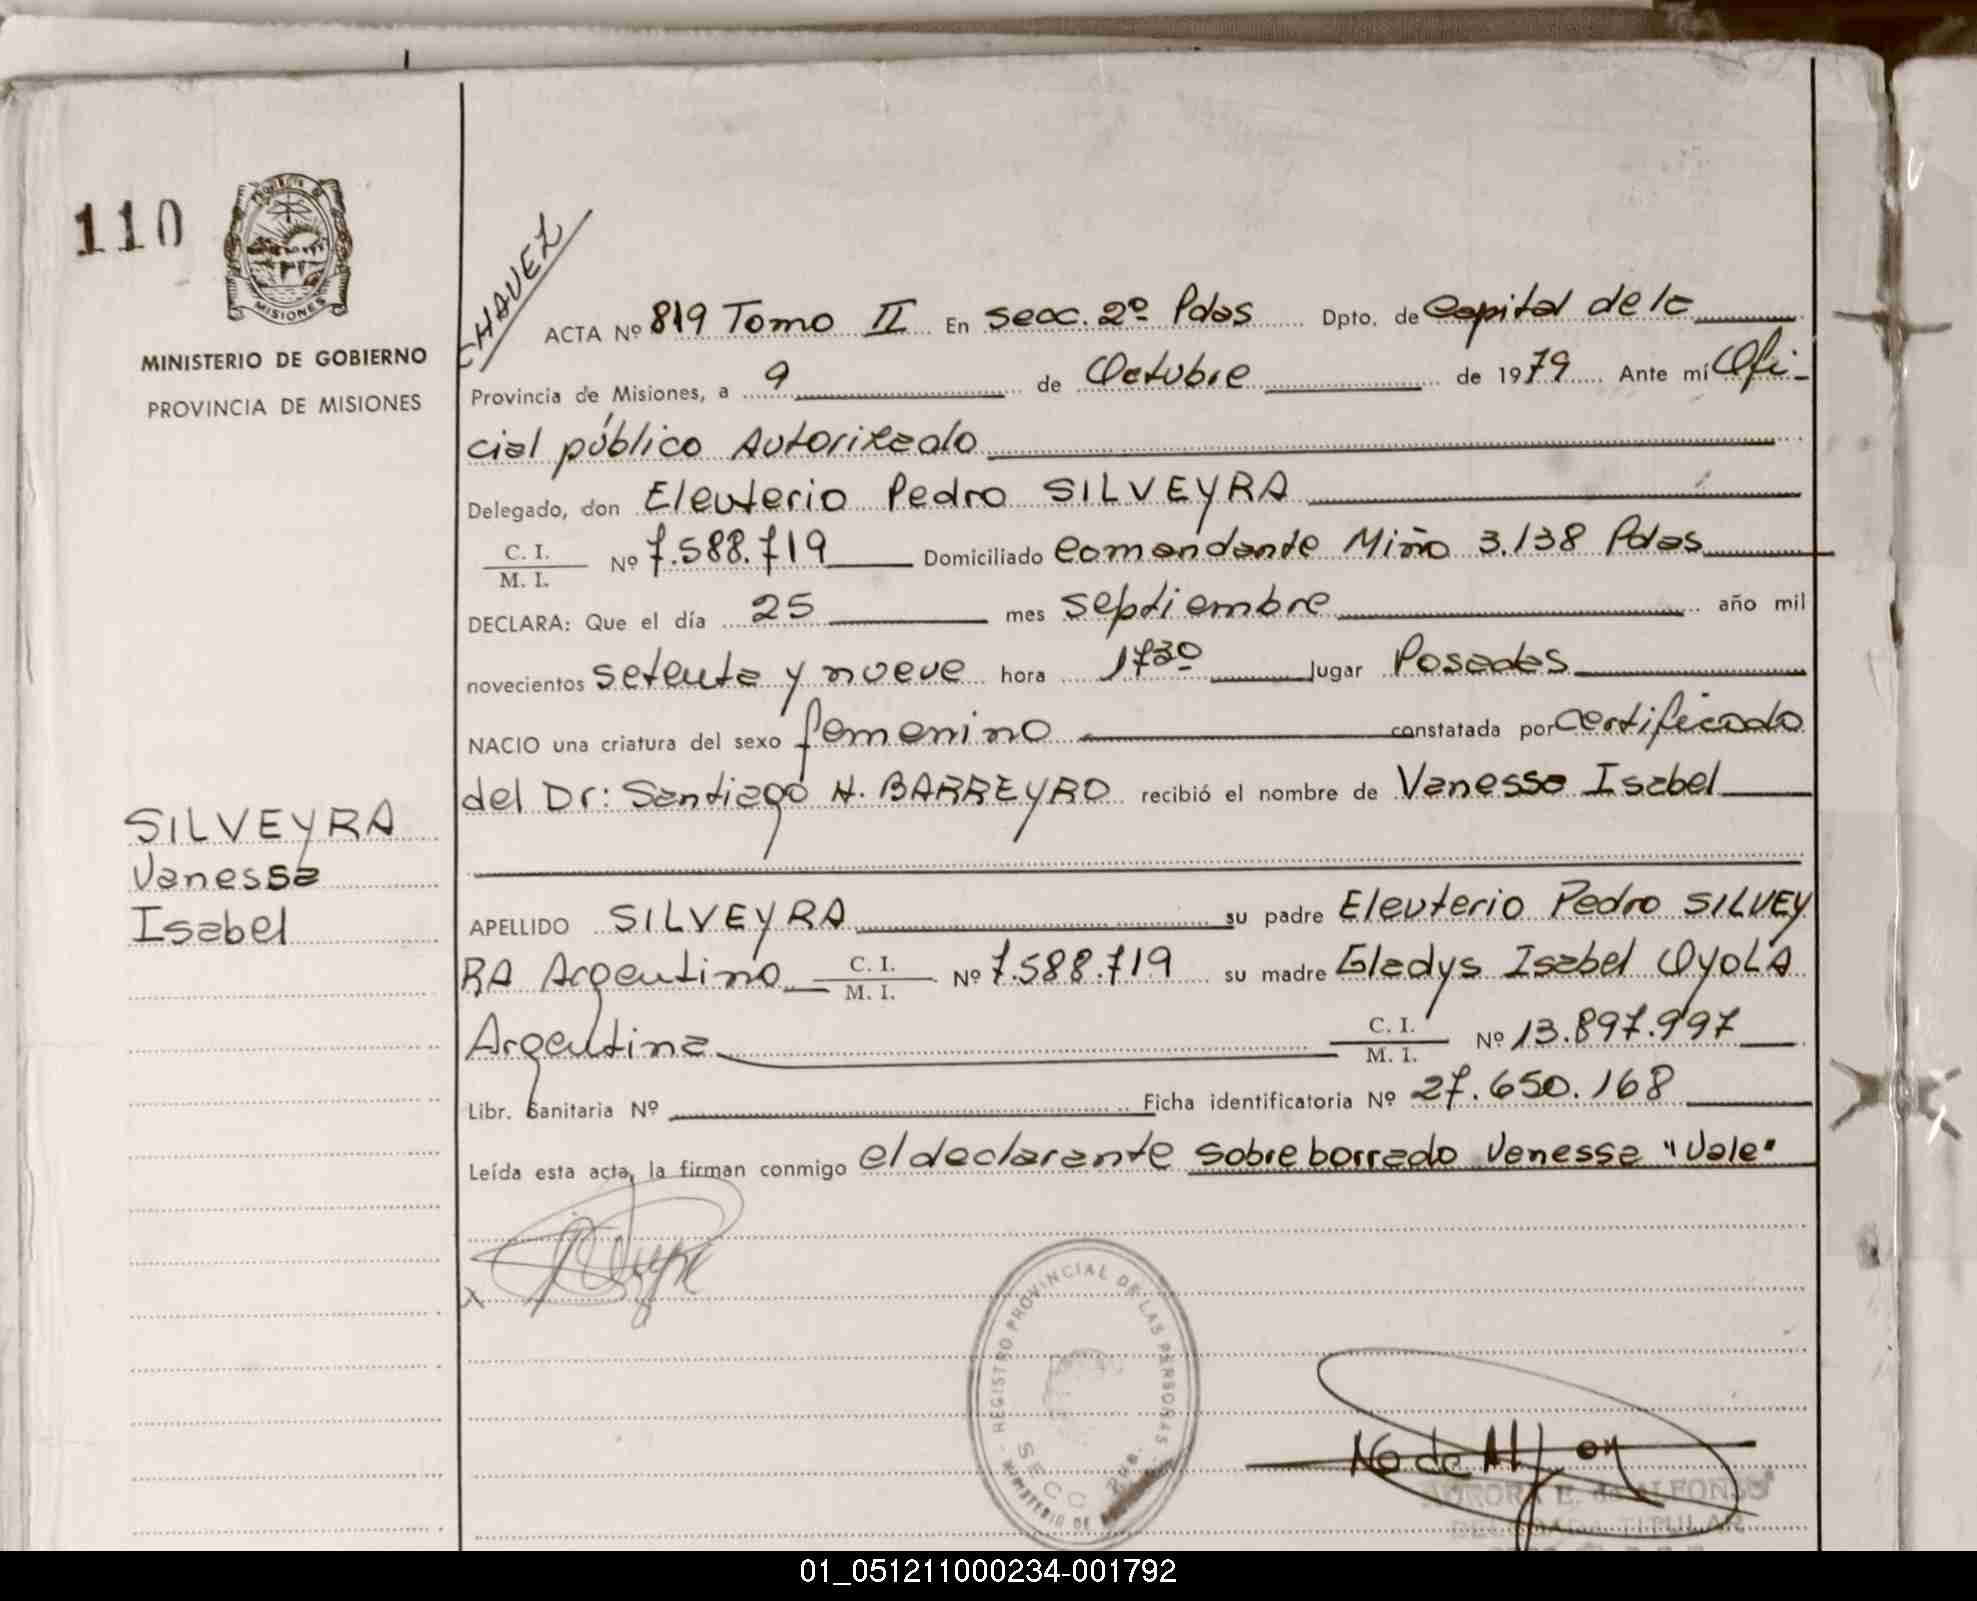 110
MISIONES
MINISTERIO DE GOBIERNO
PROVINCIA DE MISIONES
SILVEYRA
Vanessa
Isabel
CHAVEZ
ACTA Nº 819 Tomo II En secc. 2º Pdas Dpto. de Capital de la
Provincia de Misiones, a 9 de Octubre de 1979 Ante mí Ofi-
cial público Autorizado
Delegado, don Eleuterio Pedro SILVEYRA
C. I.
M. I. Nº 7.588.719 Domiciliado Comandante Miño 3.138 Pdas
DECLARA: Que el día 25 mes septiembre año mil
novecientos setenta y nueve hora 1730 lugar Posadas
NACIO una criatura del sexo femenino constatada por certificado
del Dr: Santiago H. BARREYRO recibió el nombre de Vanessa Isabel
APELLIDO SILVEYRA su padre Eleuterio Pedro SILVEY
RA Argentino C. I. M. I. Nº 7.588.719 su madre Gladys Isabel OYOLA
Argentina C. I. M. I. Nº 13.897.997
Libr. Sanitaria Nº Ficha identificatoria Nº 27.650.168
Leída esta acta, la firman conmigo el declarante sobreborrado Vanessa "Vale"
REGISTRO PROVINCIAL DE LAS PERSONAS
SECC
MINISTERIO DE
AURORA E. de ALFONSO
DELEGADA TITULAR
01_051211000234-001792